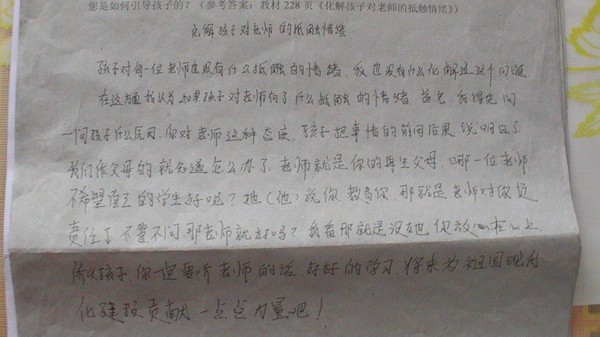 您是如何引导孩子的？（参考答案：教材 228 页《化解孩子对老师的抵触情绪》）
化解孩子对老师的抵触情绪
孩子对每一位老师在没有什么抵触的情绪，我也没有什么化解过这个问题
在这方面我认为如果孩子对老师有了什么抵触的情绪，首先，我得先问
一问孩子什么原因，你对老师这种态度，孩子把事情的前因后果说明白了
我们作父母的就知道怎么办了。老师就是你的再生父母，哪一位老师
不希望自己的学生好呢？她（他）教你教育你那就是老师对你负
责任了不管不问，那老师就好吗？我看那就是没把你放心上
所以孩子你一定要听老师的话，好好的学习，将来为祖国现代
化建设贡献一点点力量吧！